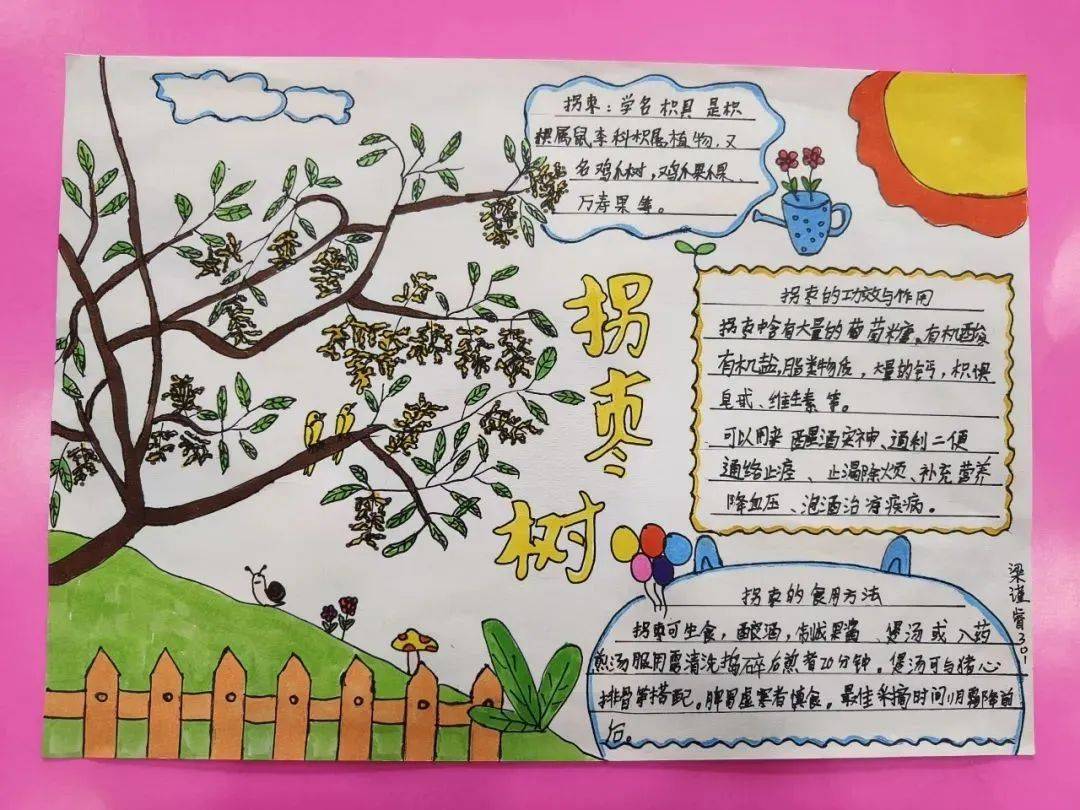 拐枣：学名枳具 是枳
椇属鼠李科枳属植物，又
名鸡爪树，鸡爪果、
万寿果等。
拐枣树
拐枣的功效与作用
拐枣中含有大量的葡萄糖、有机酸
有机盐，脂类物质，大量的钙，枳惧
皂甙、维生素 等。
可以用来 醒酒安神、通利二便
通络止痉、止渴除烦、补充营养
降血压、泡酒治 疾病。
拐枣的食用方法
拐枣可生食，酿酒，制成果酱、煲汤或入药
煎汤服用需清洗捣碎后煎煮20分钟。煲汤可与猪心
排骨等搭配。脾胃虚寒者慎食。最佳采摘时间归霜降前
后。
梁谨睿301